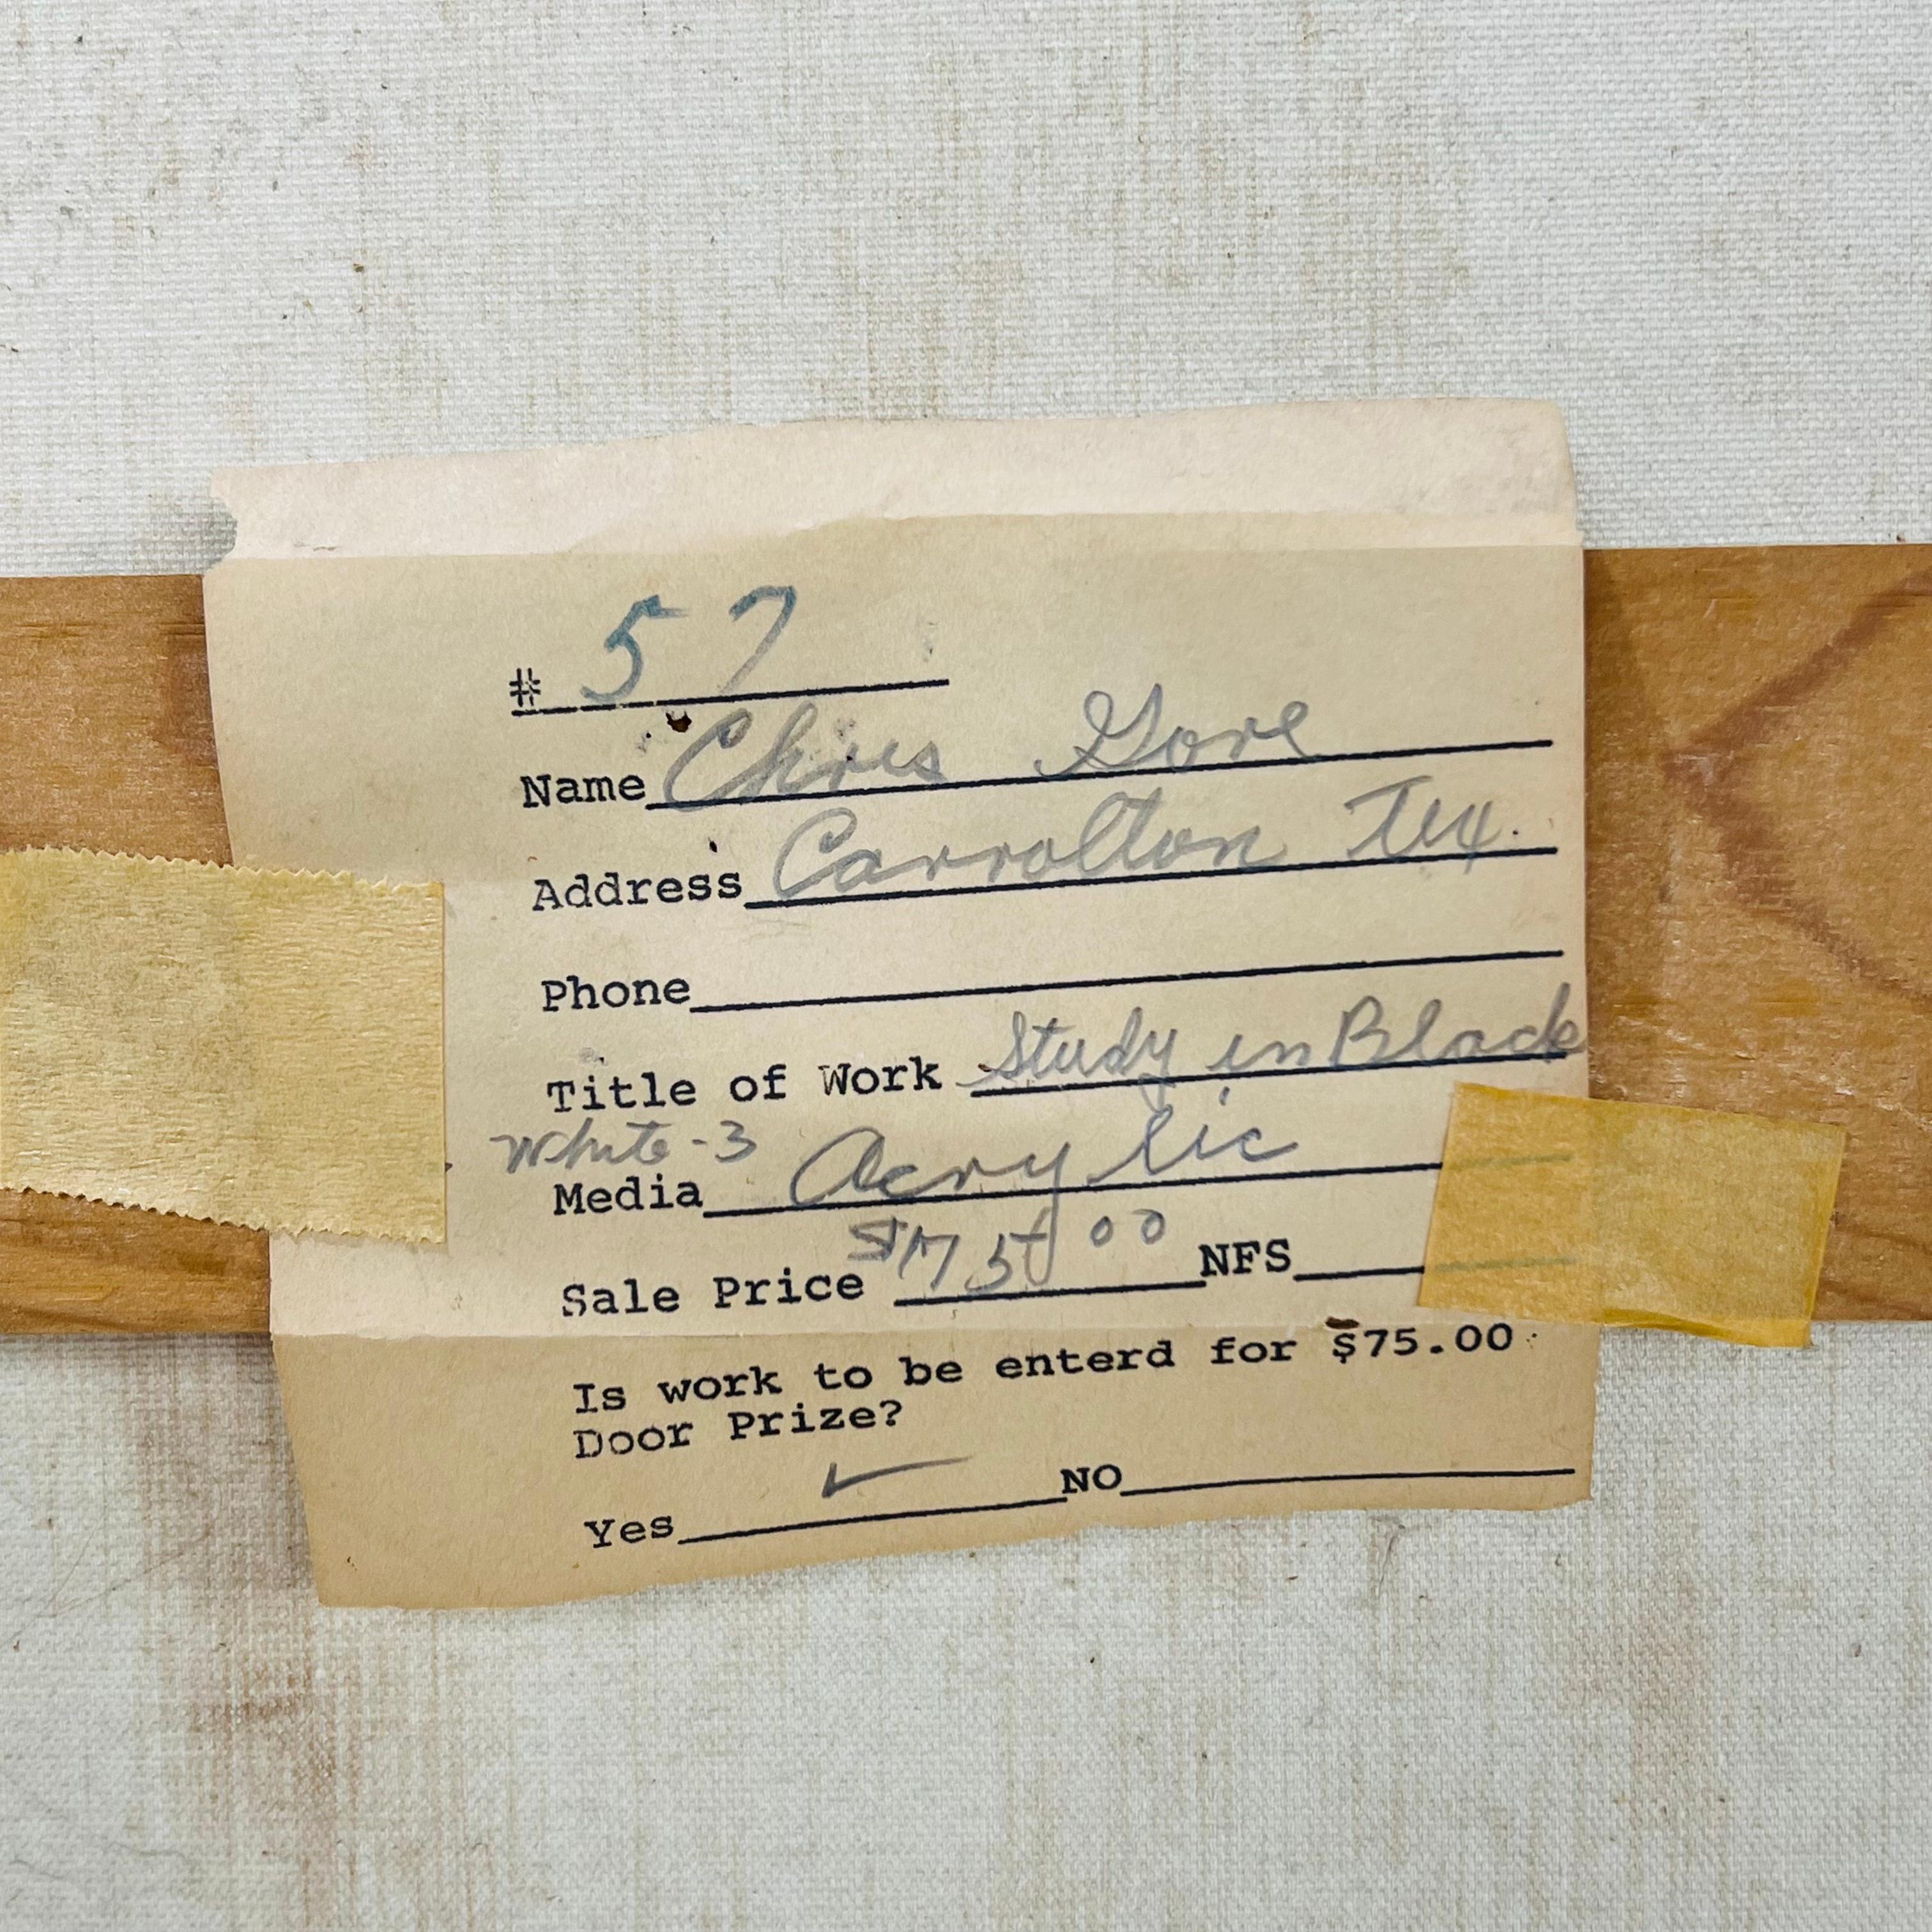 # 57
Name Chris Gore
Address Carrolton Tex.
Phone
Title of Work Study in Black
White-3
Media Acrylic
Sale Price $75 00 NFS
Is work to be enterd for $75.00
Door Prize?
Yes ✓ NO